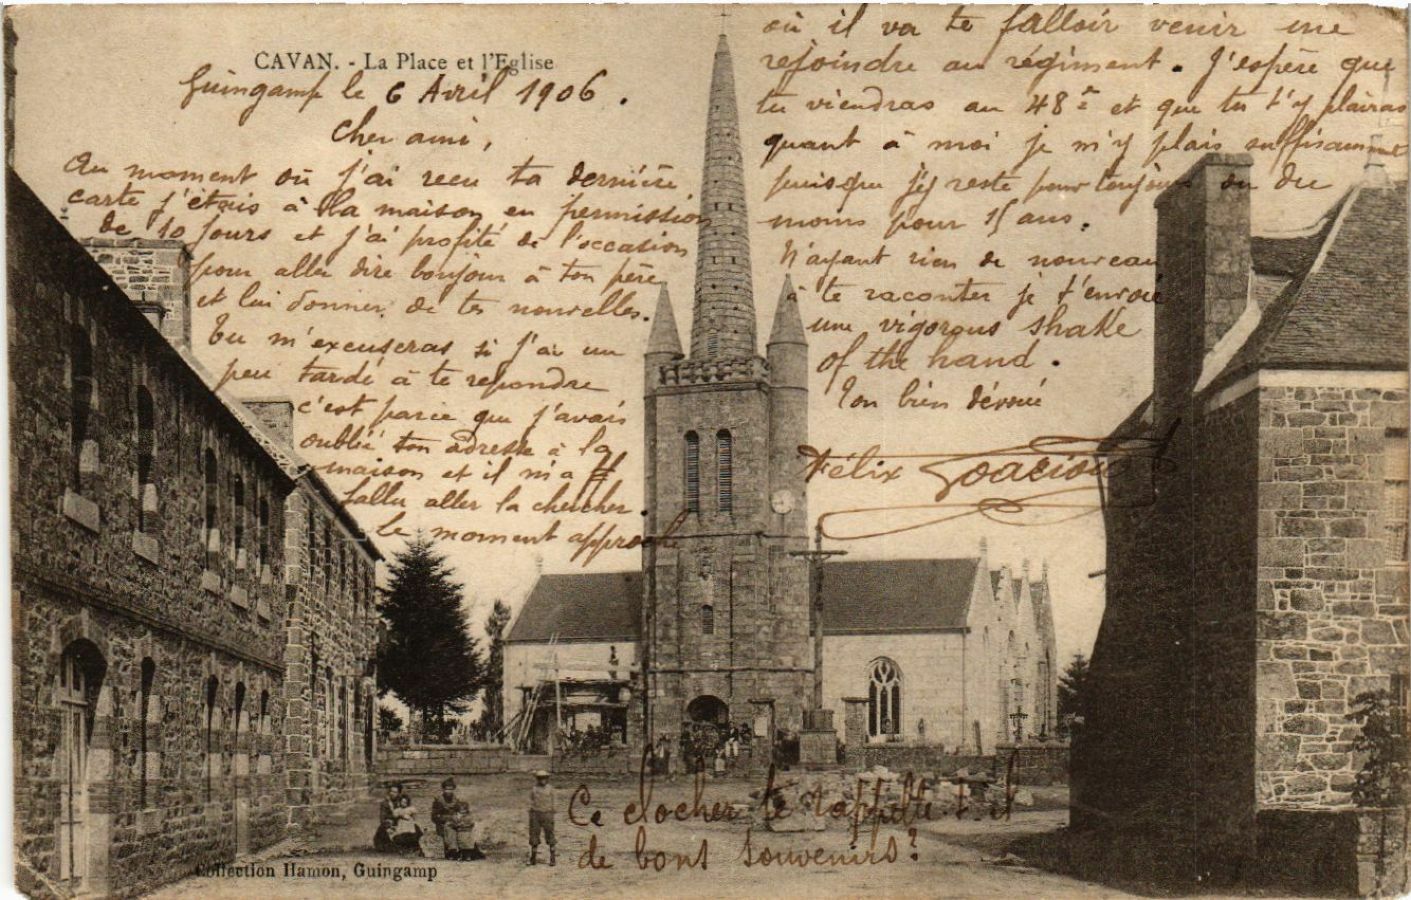 CAVAN. - La Place et l'Eglise
Guingamp le 6 Avril 1906.
Cher ami,
Au moment où j'ai reçu ta dernière
carte j'étais à la maison en permission
de 10 jours et j'ai profité de l'occasion
pour aller dire bonjour à ton père
et lui donner de tes nouvelles.
Tu m'excuseras si j'ai un
peu tardé à te repondre
c'est parce que j'avais
oublié ton adresse à la
maison et il m'a
fallu aller la chercher.
Le moment approche
où il va te falloir venir me
rejoindre au régiment. J'espère que
tu viendras au 48e et que tu t'y plairas
quant à moi je m'y plais suffisamment
puisque j'y reste pour toujours ou du
moins pour 15 ans.
N'ayant rien de nouveau
à te raconter je t'envoie
une vigorous shake
of the hand.
Ton bien dévoué
Félix
Ce clocher te rappelle-t-il
de bons souvenirs?
Collection Hamon, Guingamp